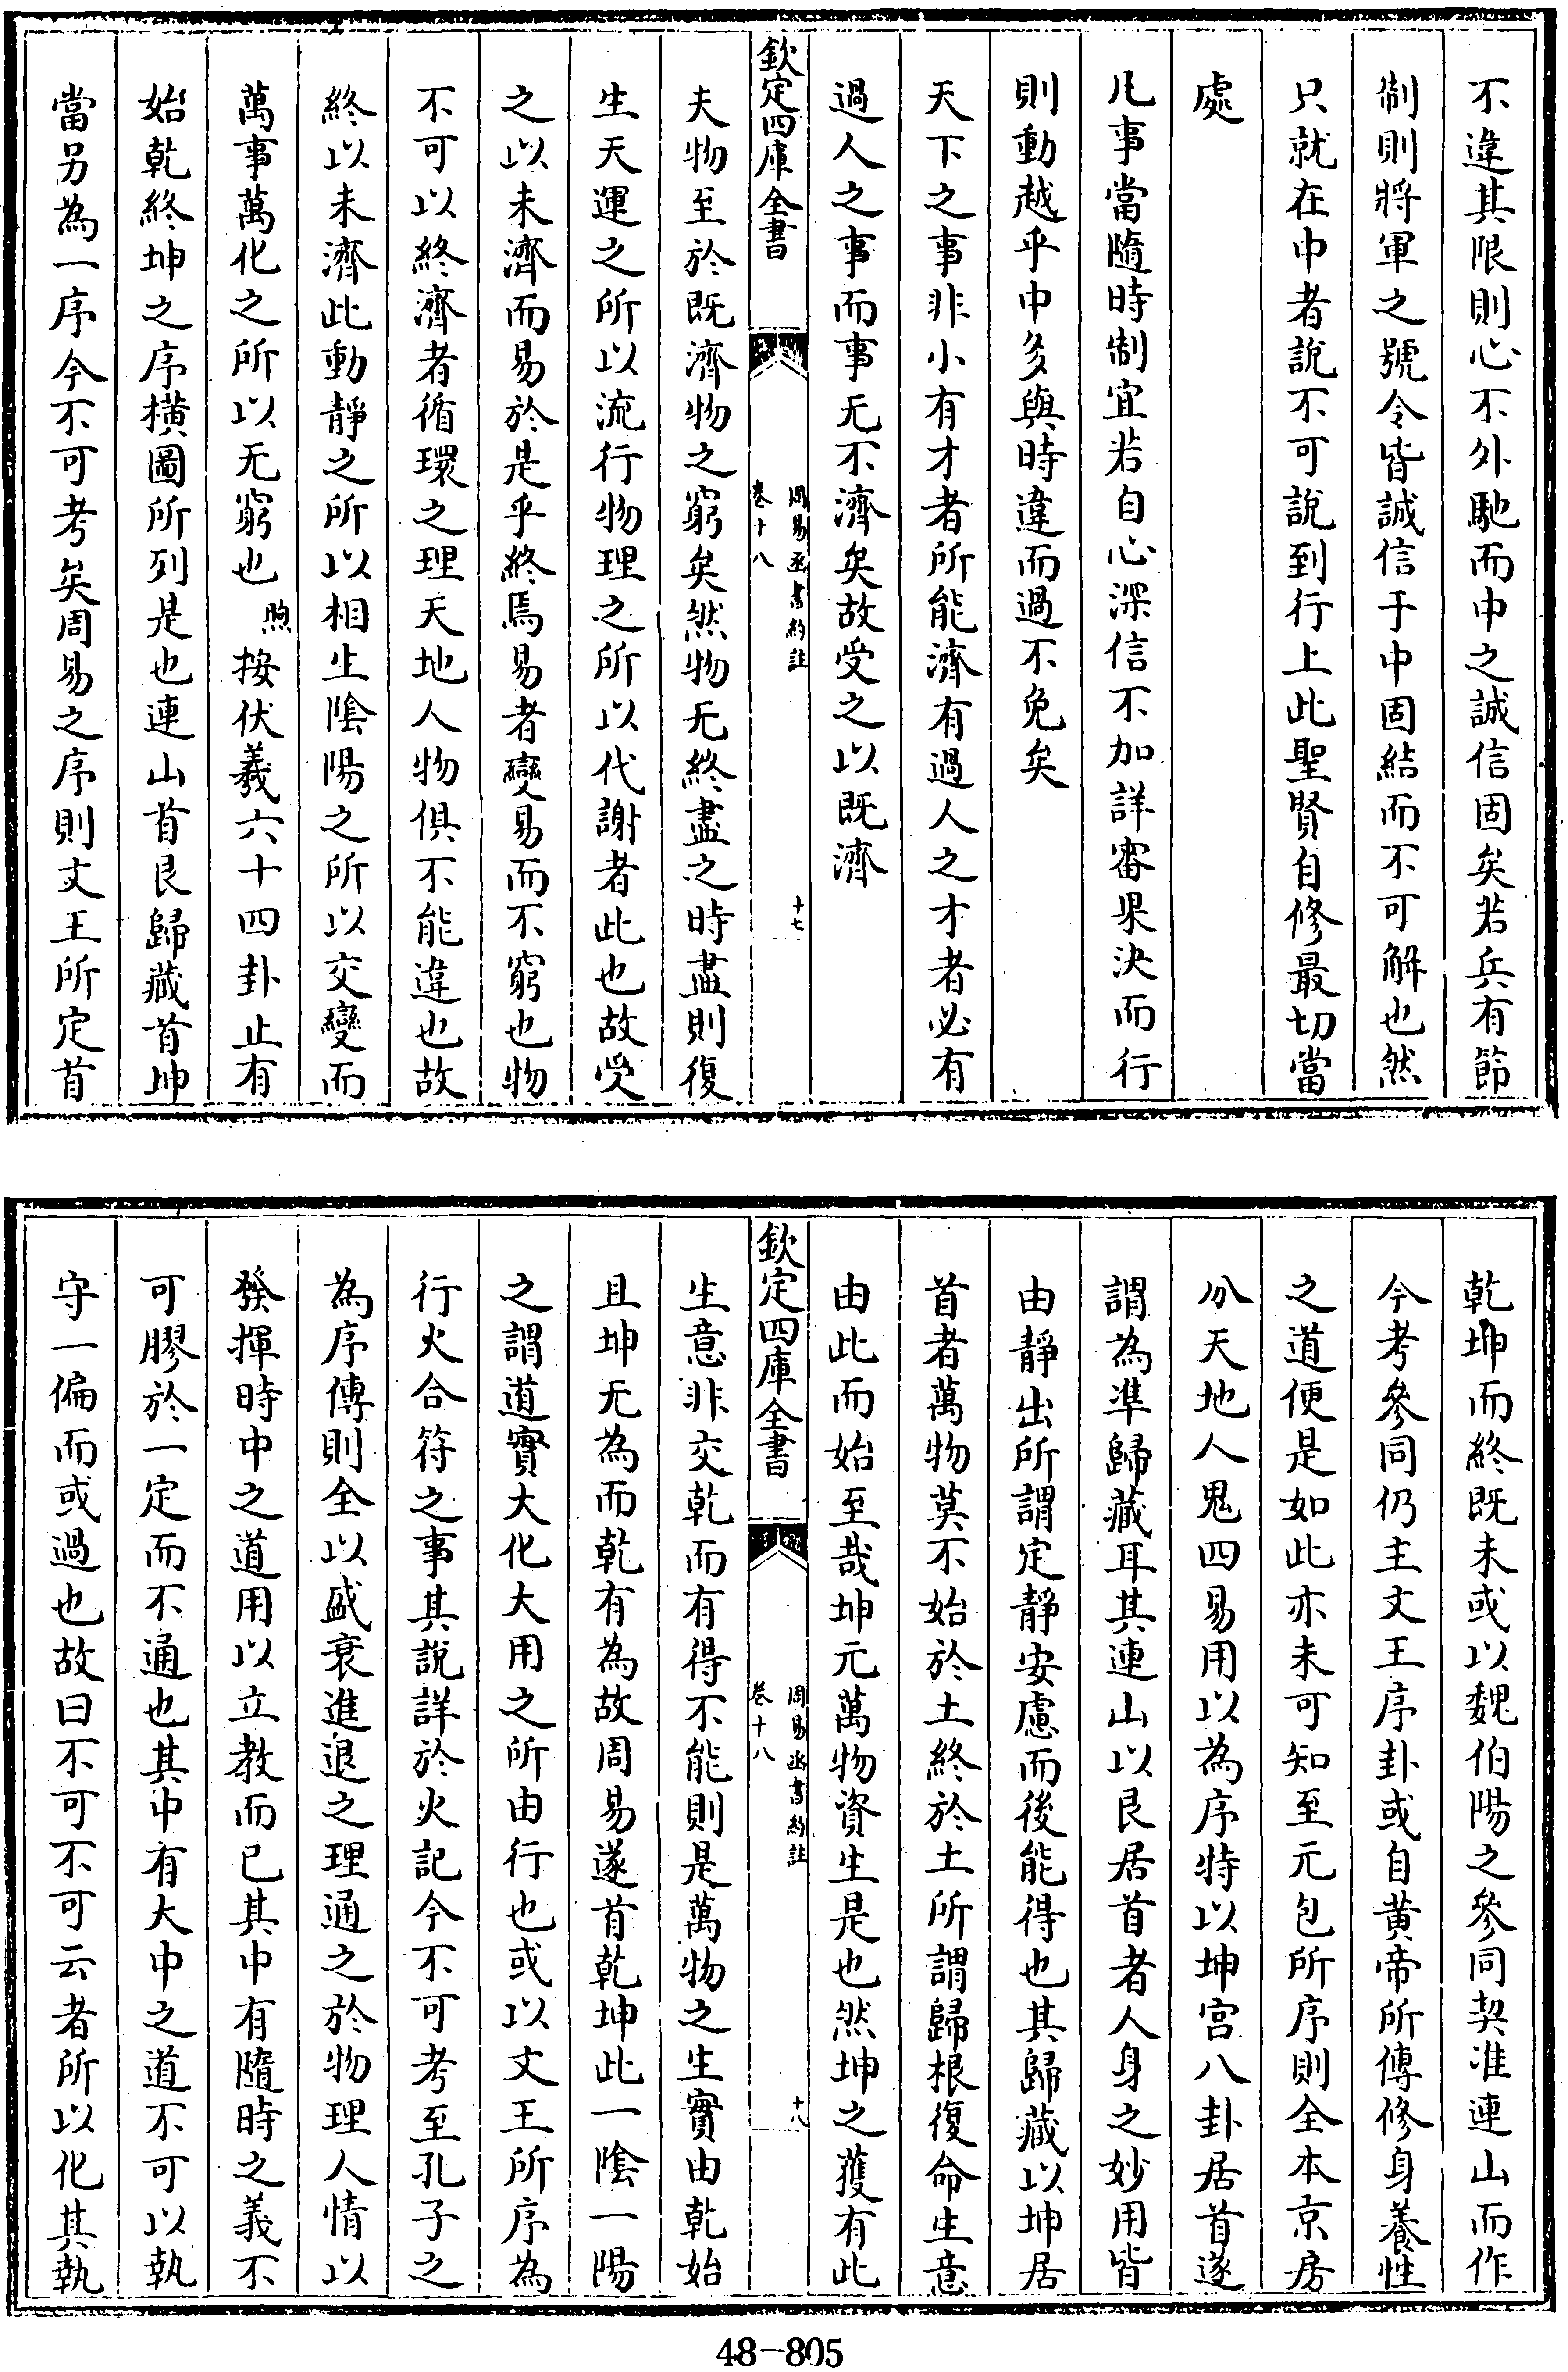 不違其限則心不外馳而中之誠信固矣若兵有節
制則將軍之號令皆誠信于中固結而不可解也然
只就在中者說不可說到行上此聖賢自修最切當
處
凡事當隨時制宜若自心深信不加詳審果決而行
則動越乎中多與時違而過不免矣
天下之事非小有才者所能濟有過人之才者必有
過人之事而事无不濟矣故受之以既濟
欽定四庫全書
周易函書約註
卷十八
十七
夫物至於既濟物之窮矣然物无終盡之時盡則復
生天運之所以流行物理之所以代謝者此也故受
之以未濟而易於是乎終焉易者變易而不窮也物
不可以終濟者循環之理天地人物俱不能違也故
終以未濟此動靜之所以相生陰陽之所以交變而
萬事萬化之所以无窮也煦按伏羲六十四卦止有
始乾終坤之序橫圖所列是也連山首艮歸藏首坤
當另為一序今不可考矣周易之序則文王所定首
乾坤而終既未或以魏伯陽之參同契准連山而作
今考參同仍主文王序卦或自黄帝所傳修身養性
之道便是如此亦未可知至元包所序則全本京房
分天地人鬼四易用以為序特以坤宮八卦居首遂
謂為準歸藏耳其連山以艮居首者人身之妙用皆
由靜出所謂定靜安慮而後能得也其歸藏以坤居
首者萬物莫不始於土終於土所謂歸根復命生意
由此而始至哉坤元萬物資生是也然坤之獲有此
欽定四庫全書
周易函書約註
卷十八
十八
生意非交乾而有得不能則是萬物之生實由乾始
且坤无為而乾有為故周易遂首乾坤此一陰一陽
之謂道實大化大用之所由行也或以文王所序為
行火合符之事其說詳於火記今不可考至孔子之
為序傳則全以盛衰進退之理通之於物理人情以
發揮時中之道用以立教而已其中有隨時之義不
可膠於一定而不通也其中有大中之道不可以執
守一偏而或過也故曰不可不可云者所以化其執
48-805